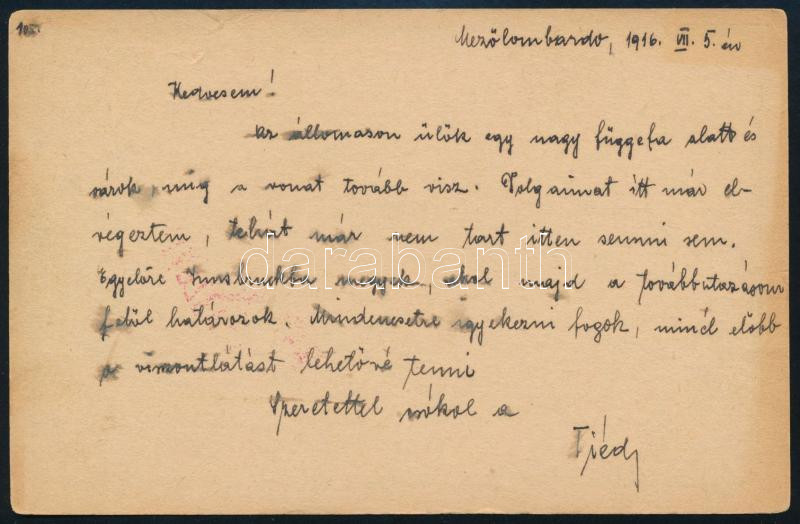 Mezőlombardo, 1916. VII. 5. én
Kedvesem!
Az állomáson ülök egy nagy függefa alatt és
várok, míg a vonat tovább visz. Dolgaimat itt már el-
végeztem, tehát már nem tart itten semmi sem.
darabanth
Egyelőre Innsbruckba megyek, ahol majd a továbbutazásom
felől határozok. Mindenesetre igyekezni fogok, minél előbb
a viszontlátást lehetővé tenni
Szeretettel csókol a
Tiéd